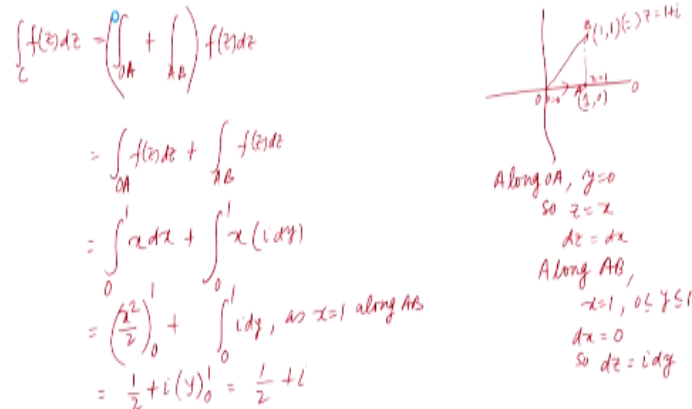 ∫_C f(z)dz = (∫_OA + ∫_AB) f(z)dz
= ∫_OA f(z)dz + ∫_AB f(z)dz
= ∫_0^1 x dx + ∫_0^1 x (i dy)
= (x²/2)_0^1 + ∫_0^1 i dy, as x=1 along AB
= 1/2 + i (y)_0^1 = 1/2 + i
B
(1,1) (=) z=1+i
O
A
x=1
(1,0)
0
Along OA, y=0
so z=x
dz = dx
Along AB,
x=1, 0≤y≤1
dx=0
so dz=idy